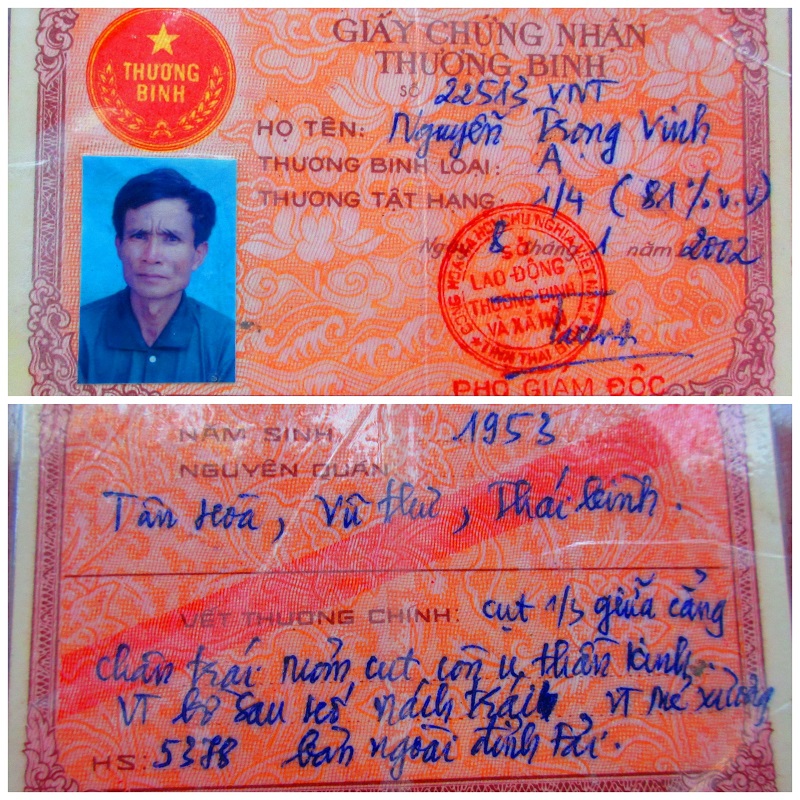 THƯƠNG
BINH
GIẤY CHỨNG NHẬN
THƯƠNG BINH
SỐ 22513 VNT
HỌ TÊN: Nguyễn Trọng Vinh
THƯƠNG BINH LOẠI: A
THƯƠNG TẬT HẠNG: 1/4 (81% v.v)
Ngày 8 tháng 1 năm 2002
CỘNG HÒA XÃ HỘI CHỦ NGHĨA VIỆT NAM
SỞ
LAO ĐỘNG
THƯƠNG BINH
VÀ XÃ HỘI
PHÓ GIÁM ĐỐC
NĂM SINH: 1953
NGUYÊN QUÁN
Tân Hòa, Vũ Thư, Thái Bình.
VẾT THƯƠNG CHÍNH: cụt 1/3 giữa cẳng
chân trái mỏm cụt còn u thần kinh
VT bờ sau hố nách trái, VT mẻ xương
HS: 5378 bản ngoài đỉnh Fải.